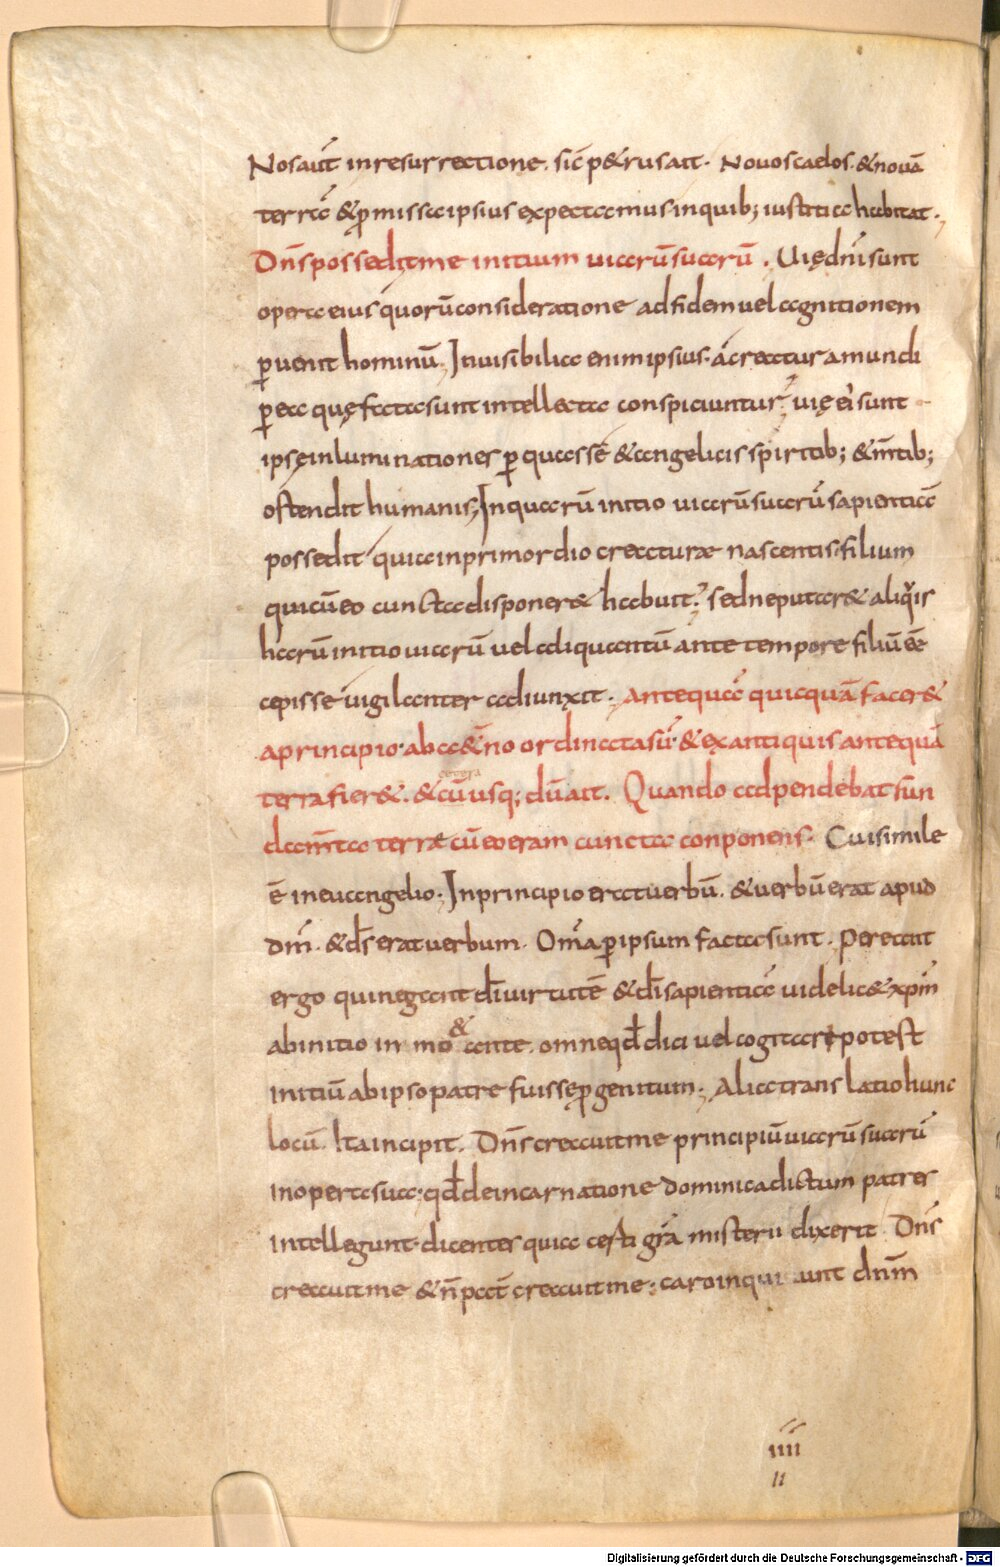 Nos aut̄ in resurrectione. sic̄ p&rus ait. Novos caelos. & novā
terrā & ꝓmissa ipsius expectamus in quib; iustitia habitat.
Dn̄s possedit me initium uiarū suarū. Uię dnī sunt
opera eius quorū consideratione ad fidem uel agnitionem
ꝑuenit hominū; Inuisibilia enim ipsius a creatura mundi
ꝑ ea quę facta sunt intellecta conspiciuntur; uię ei sunt
ipsę inluminationes ꝑ quas sē & angelicis spiritib; & m̄tib;
ostendit humanis; In quarū initio uiarū suarū sapientiā
possedit quia in primordio creaturæ nascentis filium
qui cū eo cuncta disponer& habuit; sed ne putar& aliquis
harū initio uiarū uel aliquantū ante tempore filiū eē
cepisse uigilanter adiunxit. Antequā quicquā facer&
a principio ab a&̄no ordinata sū & ex antiquis antequā
terra fier&. & cetera cū usq; dū ait. Quando adpendebat fun
dam̄ta terræ cū eo eram cuncta conponens. Cui simile
ē in euangelio. In principio erat uerbū. & uerbū erat apud
dm̄. & ds̄ erat uerbum. Om̄a ꝑ ipsum facta sunt. Pereant
ergo qui negant dī uirtutē & dī sapientiā uidelic& xpm̄
ab initio in mo & ante. omne qd̄ dici uel cogitari potest
initiū ab ipso patre fuisse ꝓgenitum; Alia translatio hunc
locū. Ita incipit. Dn̄s creauit me principiū uiarū suarū
in opera sua; qd̄ de incarnatione dominica dictum patres
intellegunt dicentes quia certi gr̄a misterii dixerit Dn̄s
creauit me & n̄ pat̄ creauit me; caro inquiunt dnm̄
iiii
ii
Digitalisierung gefördert durch die Deutsche Forschungsgemeinschaft - DFG